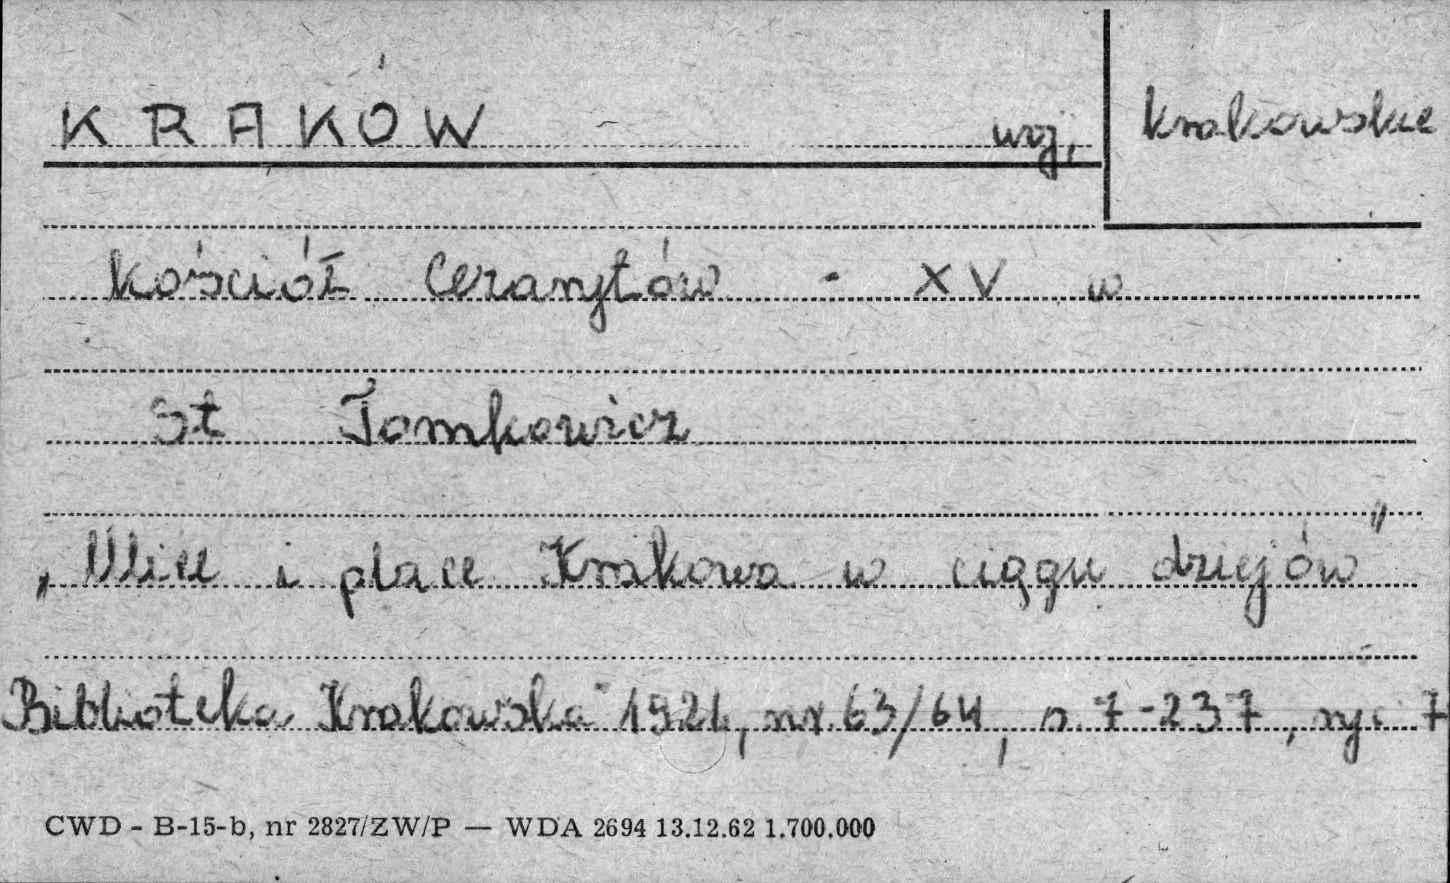 KRAKÓW woj, krakowskie
kościół Cezarytów - XV w
St Tomkowicz
„Ulice i place Krakowa w ciągu dziejów”
Biblioteka Krakowska" 1921, nr. 63/64, s. 7-237, ryc 7
CWD - B-15-b, nr 2827/ZW/P — WDA 2694 13.12.62 1.700.000